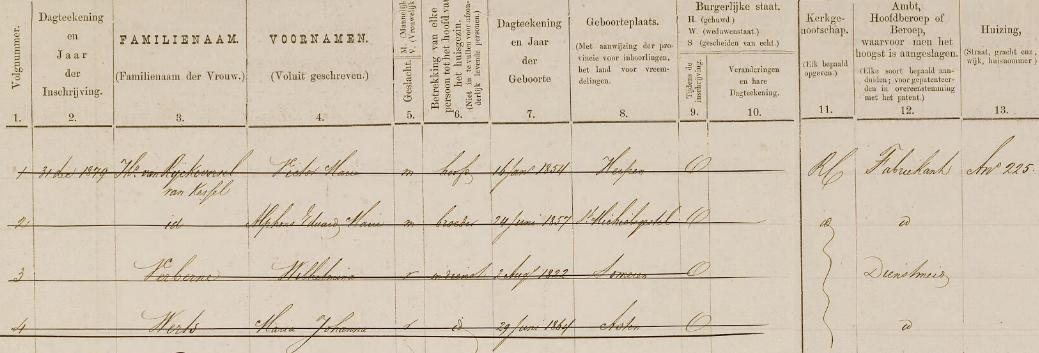 Volgnummer.
Dagteekening
en
Jaar
der
Inschrijving.
FAMILIENAAM.
(Familienaam der Vrouw.)
VOORNAMEN.
(Voluit geschreven.)
Geslacht. M. (Mannelijk)
V. (Vrouwelijk)
Betrekking van elke
persoon tot het hoofd van
het huisgezin.
(Niet in te vullen voor afzon-
derlijk levende personen.)
Dagteekening
en Jaar
der
Geboorte
Geboorteplaats.
(Met aanwijzing der pro-
vincie voor inboorlingen,
het land voor vreem-
delingen.
Burgerlijke staat.
H. (gehuwd)
W. (weduwenstaat.)
S (gescheiden van echt.)
Tijdens de
inschrijving.
Veranderingen
en hare
Dagteekening.
Kerkge-
nootschap.
(Elk bepaald
opgeven.)
Ambt,
Hoofdberoep of
Beroep,
waarvoor men het
hoogst is aangeslagen.
(Elke soort bepaald aan-
duiden; voor gepatenteer-
den in overeenstemming
met het patent.)
Huizing,
(Straat, gracht enz.,
wijk, huisnummer)
1. 2. 3. 4. 5. 6. 7. 8. 9. 10. 11. 12. 13.
1 31 dec 1879 Jhr van Rijckevorsel Victor Marie m hoofd 16 Jan 1854 Heesen O RC Fabrikant Aw 225
van Kessel
2 id Alphons Eduard Marie m broeder 24 Juni 1857 St Michielsgestel O id
3 Verberne Wilhelmina v 2 Aug 1822 Someren O Dienstmeid
4 Werts Maria Johanna v id 29 Juni 1864 Asten O id